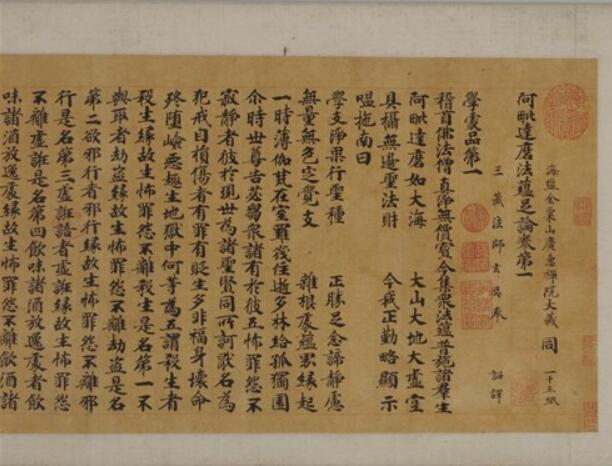 海鹽金粟山廣惠禪院大藏 同 一十五紙
阿毗達磨法蘊足論卷第一
三藏法師玄奘奉 詔譯
學處品第一
稽首佛法僧真淨無價寶今集眾法蘊普施諸群生
阿毗達磨如大海 大山大地大虛空
具攝無邊聖法財 今我正勤略顯示
嗢拖南曰
學支淨果行聖種 正勝足念諦靜慮
無量無色定覺支 雜根處蘊界緣起
一時薄伽梵在室羅筏住逝多林給孤獨園
尒時世尊告苾芻眾諸有於彼五怖罪怨不
寂靜者彼於現世為諸聖賢同所訶猒名為
犯戒自損傷者有罪有貶生多非福身壞命
終墮嶮惡趣生地獄中何等為五謂殺生者
殺生緣故生怖罪怨不離殺生是名第一不
與取者劫盜緣故生怖罪怨不離劫盜是名
第二欲邪行者邪行緣故生怖罪怨不離邪
行是名第三虛誑語者虛誑緣故生怖罪怨
不離虛誑是名第四飲味諸酒放逸處者飲
味諸酒放逸處緣故生怖罪怨不離飲酒諸